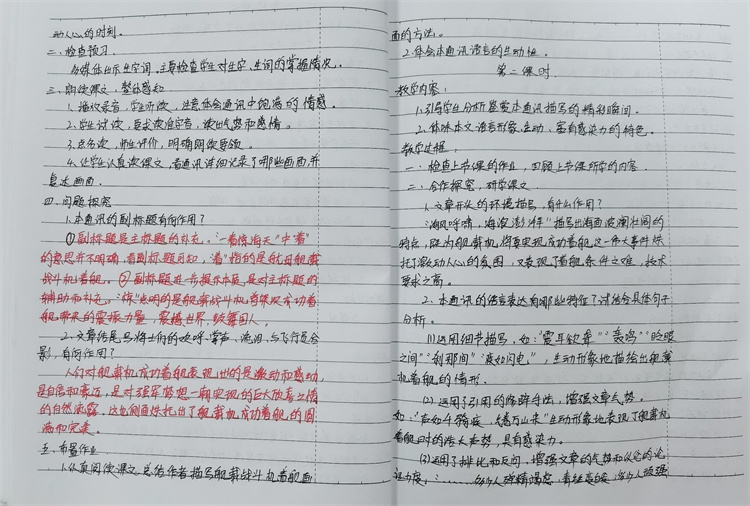 动人心的时刻。
二、检查预习
多媒体出示生字词,主要检查学生对生字、生词的掌握情况。
三、朗读课文,整体感知
1.播放录音,学生听读,注意体会通讯中饱满的情感。
2.学生试读,要求读准字音,读出气势和感情。
3.点名读,师生评价,明确朗读要领。
4.让学生认真读课文,看通讯详细记录了哪些画面,并
复述画面。
四、问题探究
1.本通讯的副标题有何作用?
①副标题是主标题的补充。"一着惊海天"中"着"
的意思并不明确,看副标题可知,"着"指的是航母舰载
战斗机着舰。②副标题进一步揭示本质,是对主标题的
辅助而补充。"惊"说明的是舰载战斗机首架次成功着
舰带来的震撼力量,震撼世界,鼓舞国人。
2.文章结尾写将士们的欢呼、掌声、流泪、与飞行员合
影,有何作用?
人们对舰载机成功着舰表现出的是激动和感动,
是自信和豪迈,是对强军梦想一朝实现的巨大欣喜之情
的自然流露。这也侧面烘托出了舰载机成功着舰的圆
满和完美。
五、布置作业
1.认真阅读课文,总结作者描写舰载战斗机着舰画
面的方法。
2.体会本通讯语言的生动性。
第二课时
教学内容:
1.引导学生分析鉴赏本通讯描写的精彩瞬间。
2.体味本文语言形象、生动、富有感染力的特色。
教学过程:
一、检查上节课的作业,回顾上节课所学的内容。
二、合作探究,研学课文。
1.文章开头的环境描写,有什么作用?
"海风呼啸,海浪澎湃"描写出海面波澜壮阔的
特点,既为舰载机将要实现成功着舰这一伟大事件烘
托了激动人心的氛围,又表现了着舰条件之难,技术
要求之高。
2.本通讯的语言表达有哪些特征?试结合具体句子
分析。
(1)运用细节描写,如:"震耳欲聋""轰鸣""眨眼
之间""刹那间""疾如闪电",生动形象地描绘出舰载
机着舰的情形。
(2)运用了引用的修辞手法,增强文章气势。
如:"右如千骑疾,矮万山来"生动形象地表现了舰载机
着舰时的浩大声势,具有感染力。
(3)运用了排比和反问,增强文章的气势和议论的论
证力度,:……多少人殚精竭虑,青丝变白发,多少人顽强